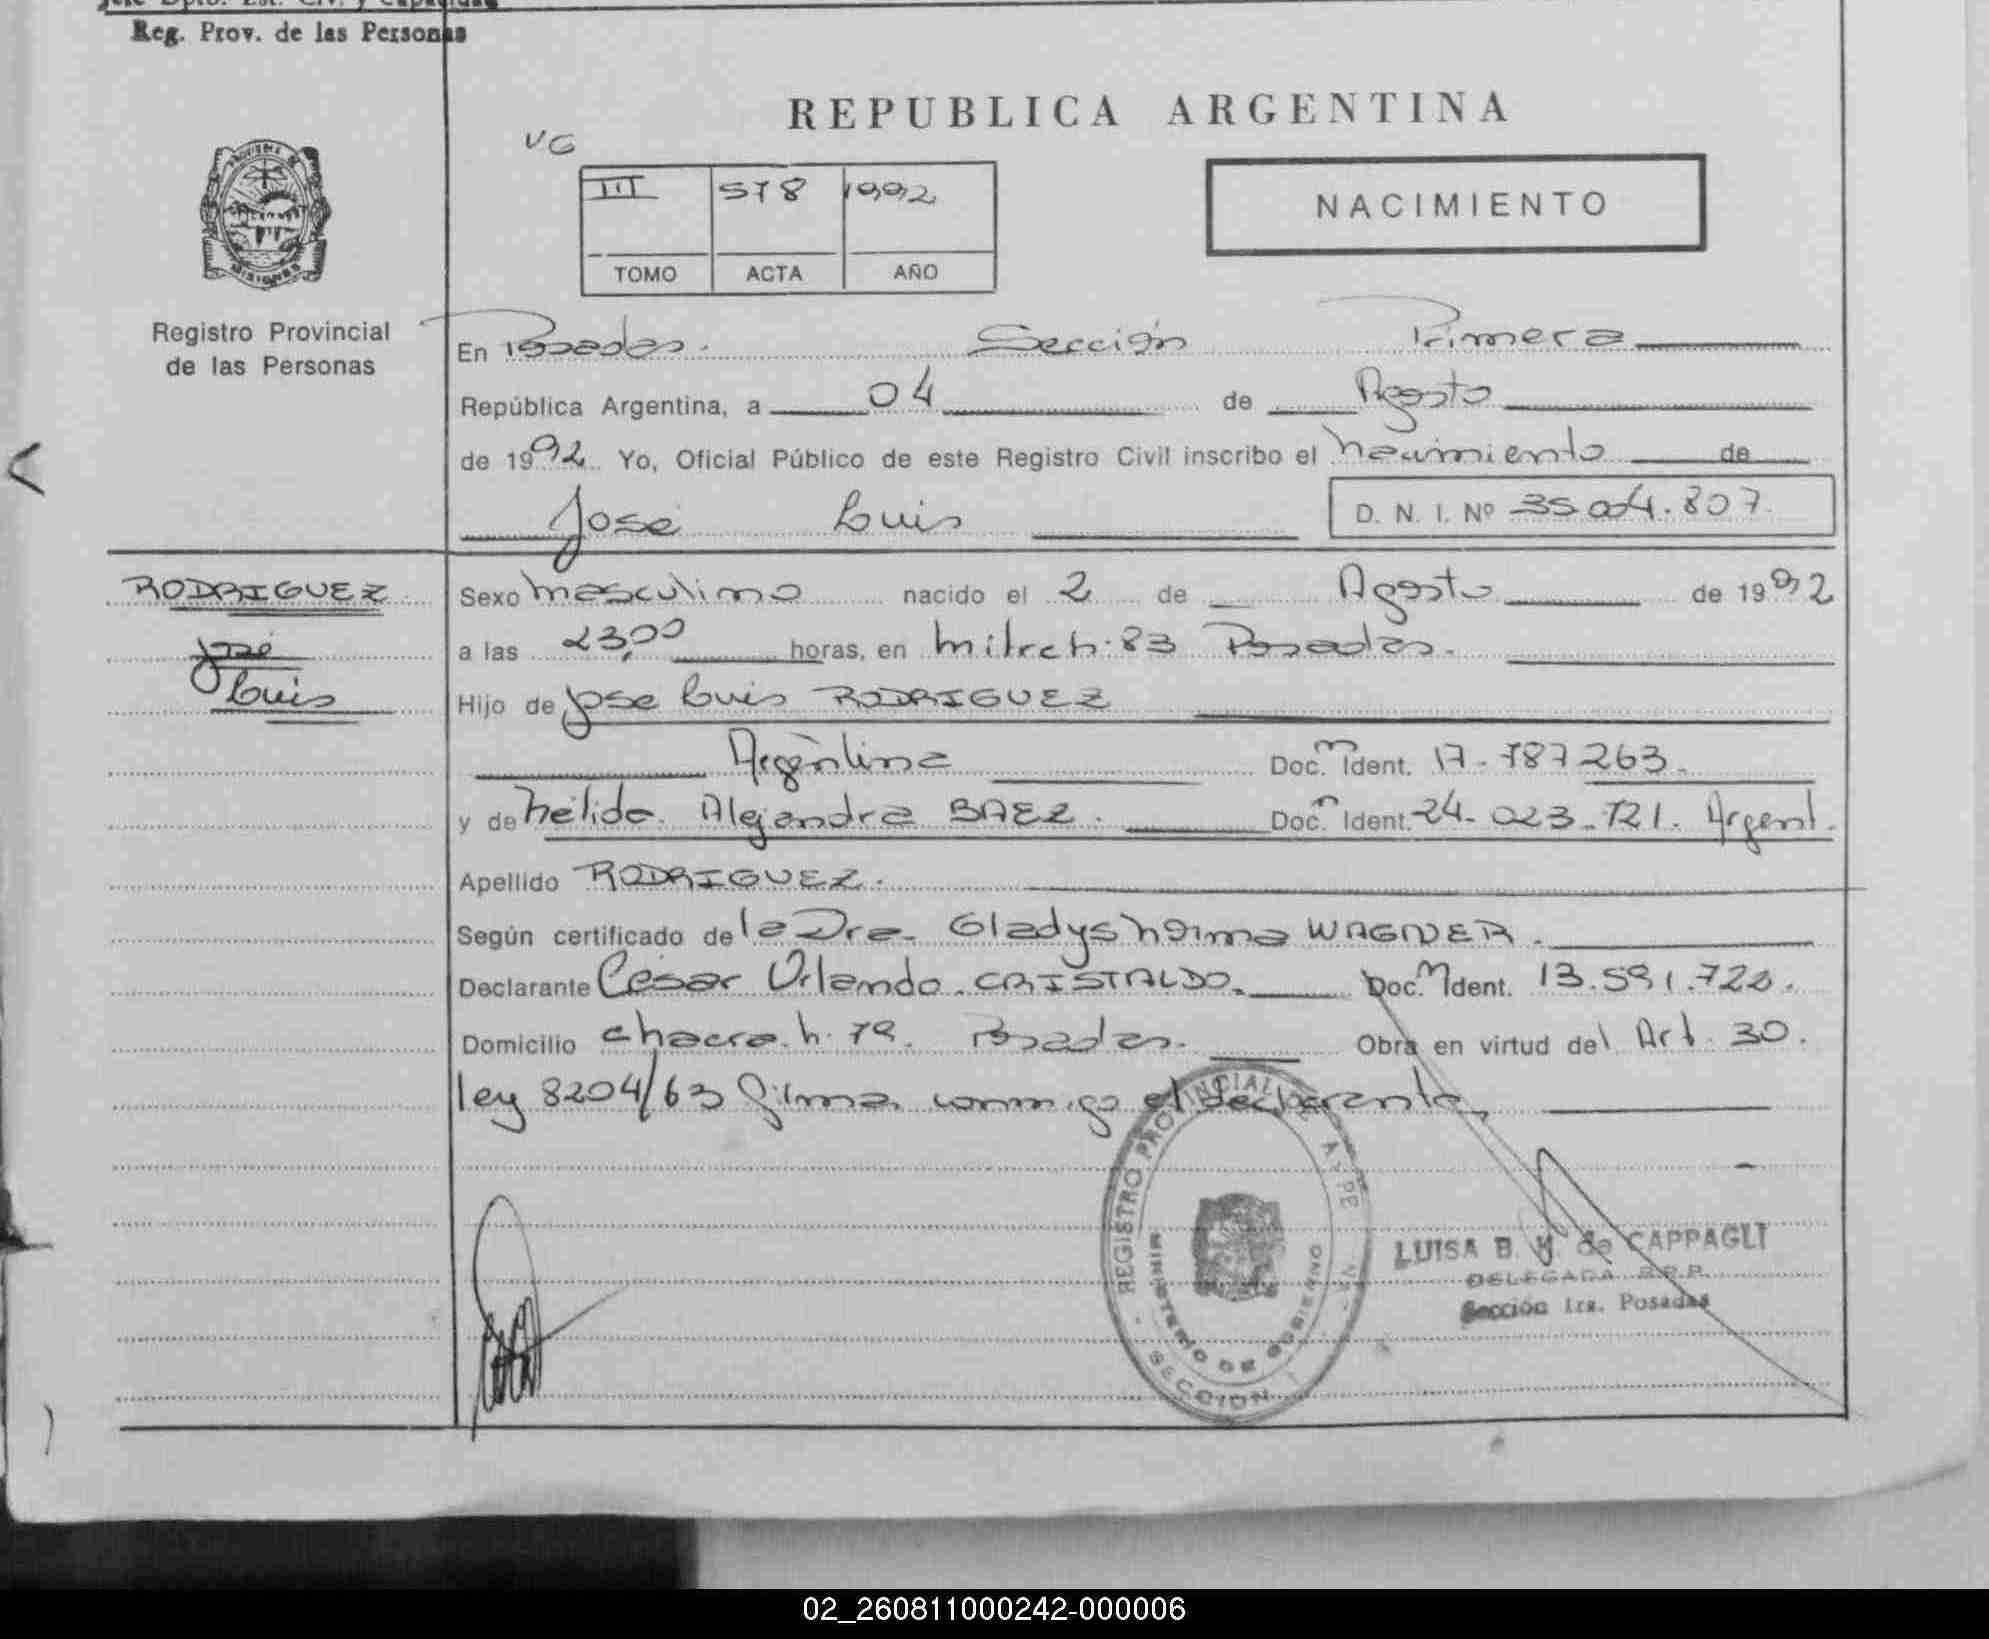 Jefe Dpto. Est. Civ. y Capacidad
Reg. Prov. de las Personas
REPUBLICA ARGENTINA
VG
III 578 1992
TOMO ACTA AÑO
NACIMIENTO
PROVINCIA DE
MISIONES
Registro Provincial
de las Personas
En Posadas. Sección Primera
República Argentina, a 04 de Agosto
de 1992 Yo, Oficial Público de este Registro Civil inscribo el Nacimiento de
José Luis D. N. I. Nº 35.004.807
RODRIGUEZ
José
Luis
Sexo masculino nacido el 2 de Agosto de 1992
a las 23,00 horas, en Mitre N. 83 Posadas.
Hijo de Jose Luis RODRIGUEZ
Argentina Doc. Ident. 17.787.263.
y de Nélida Alejandra BAEZ. Doc. Ident. 24.023.721. Argent.
Apellido RODRIGUEZ.
Según certificado de la Dra. Gladys Norma WAGNER.
Declarante César Orlando CRISTALDO. Doc. Ident. 13.591.722.
Domicilio chacra N. 79. Posadas. Obra en virtud del Art. 30.
ley 8204/63 firma conmigo el declarante,
REGISTRO PROVINCIAL DE
MINISTERIO DE GOBIERNO
SECCION
LUISA B. de CAPPAGLI
DELEGADA R.P.P.
Sección 1ra. Posadas
02_260811000242-000006